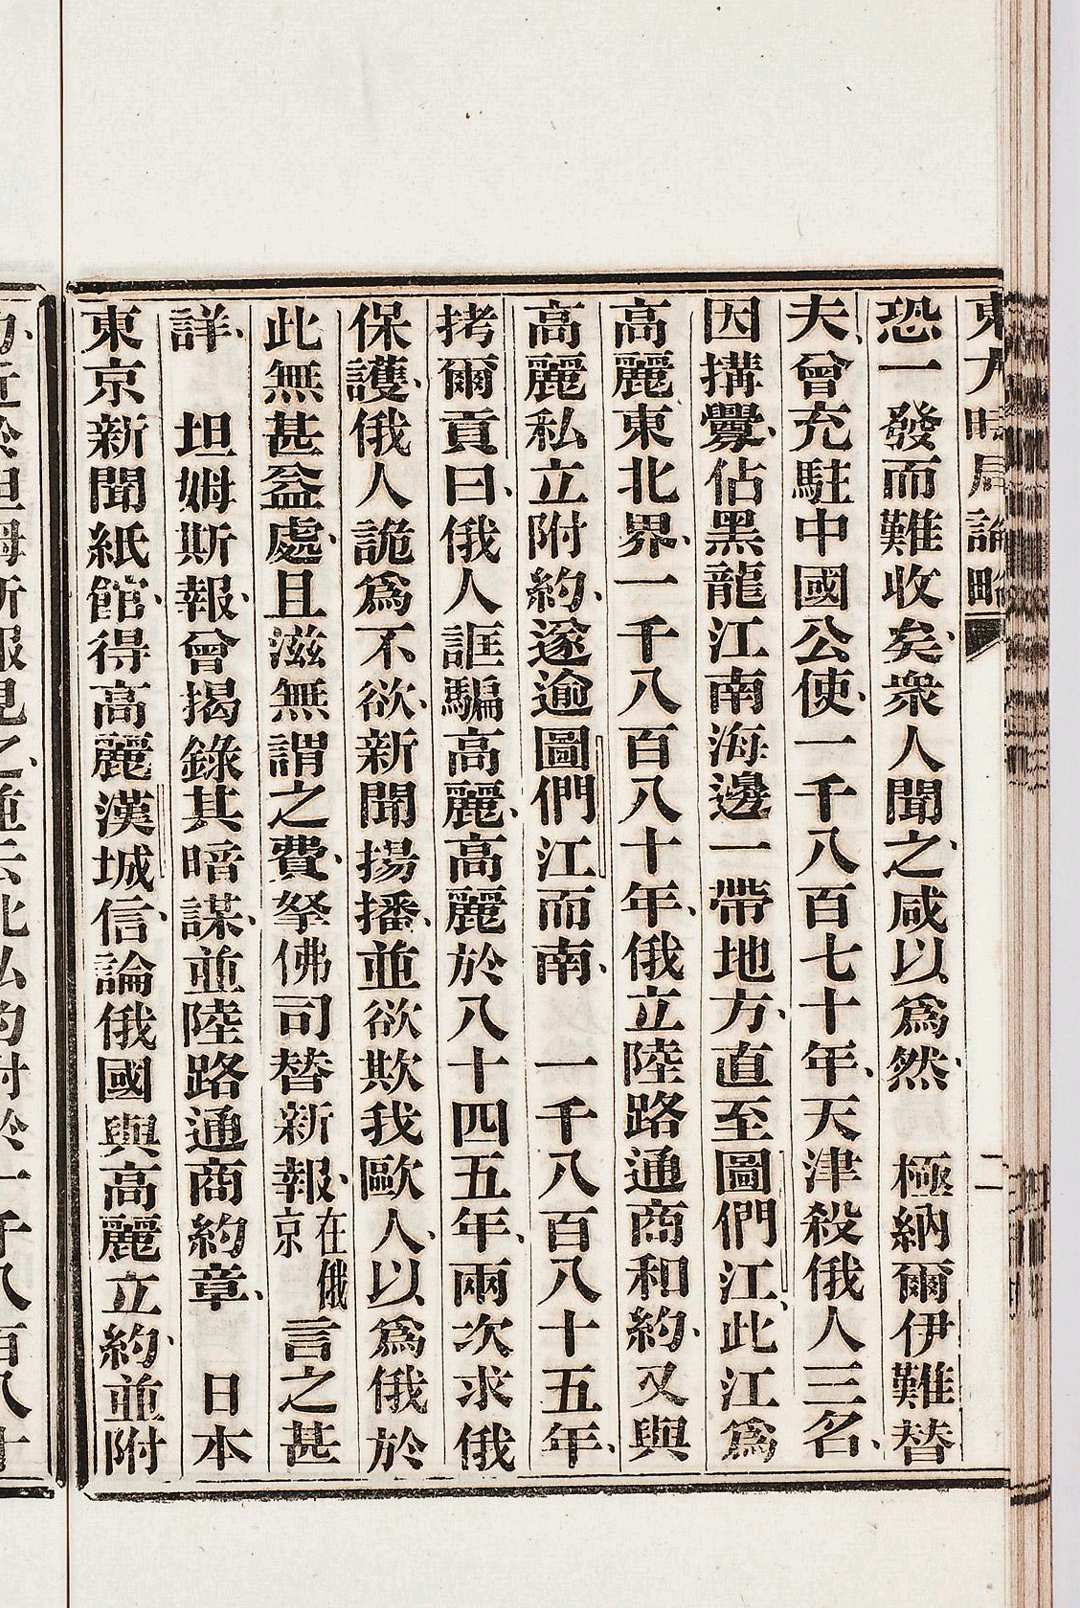 東方時局論略 二
恐一發而難收矣、衆人聞之、咸以爲然、 極納爾伊難替
夫、曾充駐中國公使、一千八百七十年、天津殺俄人三名、
因搆釁、佔黑龍江南海邊一帶地方、直至圖們江、此江爲
高麗東北界、一千八百八十年、俄立陸路通商和約、又與
高麗私立附約、遂逾圖們江而南、 一千八百八十五年、
拷爾貢曰、俄人誆騙高麗、高麗於八十四五年、兩次求俄
保護、俄人詭爲不欲、新聞揚播、並欲欺我歐人、以爲俄於
此無甚益處、且滋無謂之費、拏佛司替新報、在俄京言之甚
詳、 坦姆斯報、曾揭錄其暗謀、並陸路通商約章、 日本
東京新聞紙館、得高麗漢城信、論俄國與高麗立約、並附